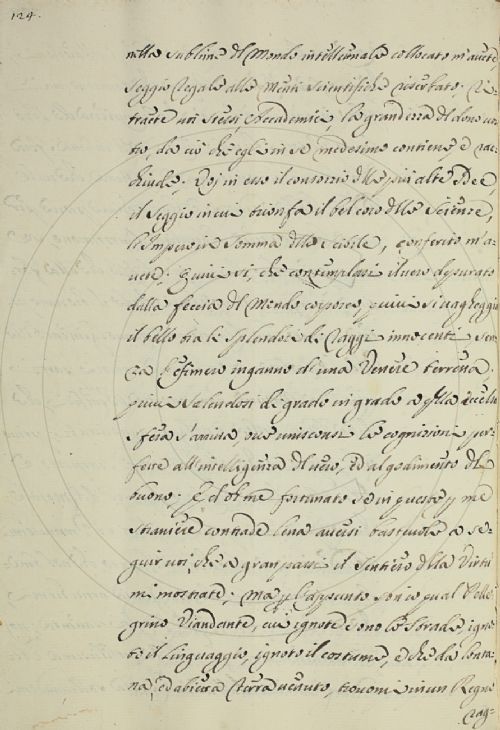 124.
nella sublime del Mondo intellettuale collocato m'avete,
seggio Regale alle Menti scientifiche riserbato. Ri-
traete voi stessi, Accademici, la grandezza del dono vos-
tro, da ciò che egli in se medesimo contiene, e rac-
chiude. Voi in esso il consorzio delle più alte Dee,
il seggio in cui trionfa il bel coro delle Scienze,
l'Impero in somma dello scibile, conferito m'a-
vete; quivi si, che contemplasi il vero depurato
dalla feccia del Mondo corporeo, quivi si vagheggia
il bello tra li splendori di raggi innocenti sen-
za l'efimero inganno d'una Venere terrena.
quivi salendosi di grado in grado a quella eccelsa
sfera s'arriva, ove uniscansi le cognizioni per-
fette all'intelligenza del vero, ed al godimento del
buono. E ch oh me fortunato se in queste p me
straniere contrade lena avessi bastevole a se-
guir voi, che a gran passi il sentiero della Virtù
mi mostrate; Ma p l'appunto son io qual Pelle-
grino Viandante, cui ignote sono le strade, igno-
to il linguaggio, ignoto il costume, e che da lonta-
na, ed abietta Terra venuto, trovomi in un Regno
rag-